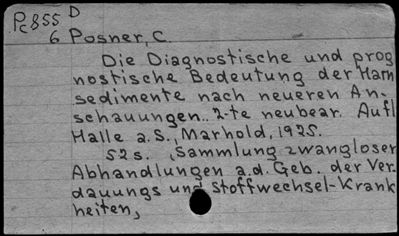 Pc855 D
6 Posner, C.
Die Diagnostische und prog
nostische Bedeutung der Harn
sedimente nach neueren An-
schauungen.. 2-te neubear. Aufl
Halle a.S., Marhold, 1925.
52s. „Sammlung zwangloser
Abhandlungen a.d. Geb. der Ver-
dauungs und Stoffwechsel-Krank
heiten„